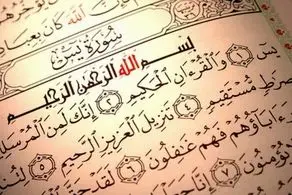 ٱللَّهَ كَانَ بِعِبَا
سُورَةُ يسٓ
بِسْمِ ٱللَّهِ ٱلرَّحْمَٰنِ ٱلرَّحِيمِ
يسٓ ١ وَٱلْقُرْءَانِ ٱلْحَكِيمِ ٢ إِنَّكَ لَمِنَ ٱلْمُرْسَلِ
صِرَٰطٍ مُّسْتَقِيمٍ ٤ تَنزِيلَ ٱلْعَزِيزِ ٱلرَّحِيمِ ٥
ءَابَآؤُهُمْ فَهُمْ غَٰفِلُونَ ٦ لَقَدْ
يُؤْمِنُونَ ٧